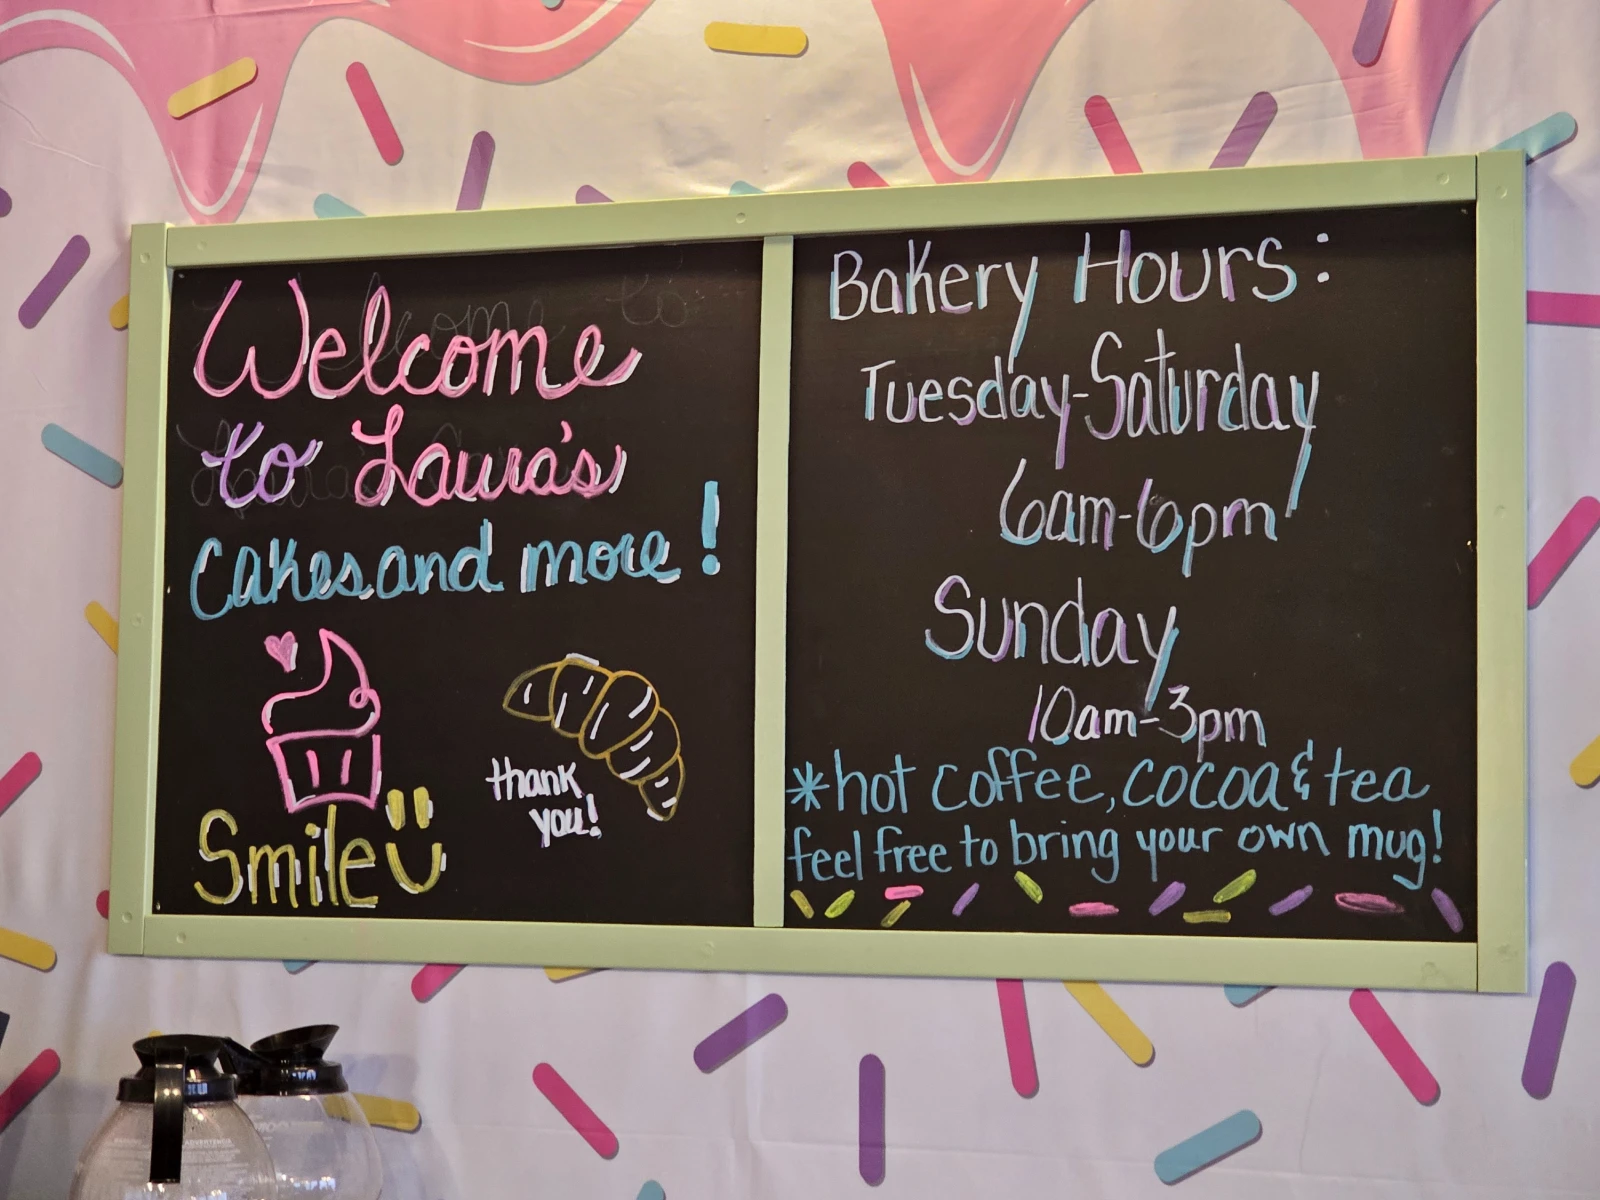 Welcome
to Laura's
Cakes and more!
thank
you!
Smile
Bakery Hours:
Tuesday-Saturday
6am-6pm
Sunday
10am-3pm
*hot coffee, cocoa & tea
feel free to bring your own mug!